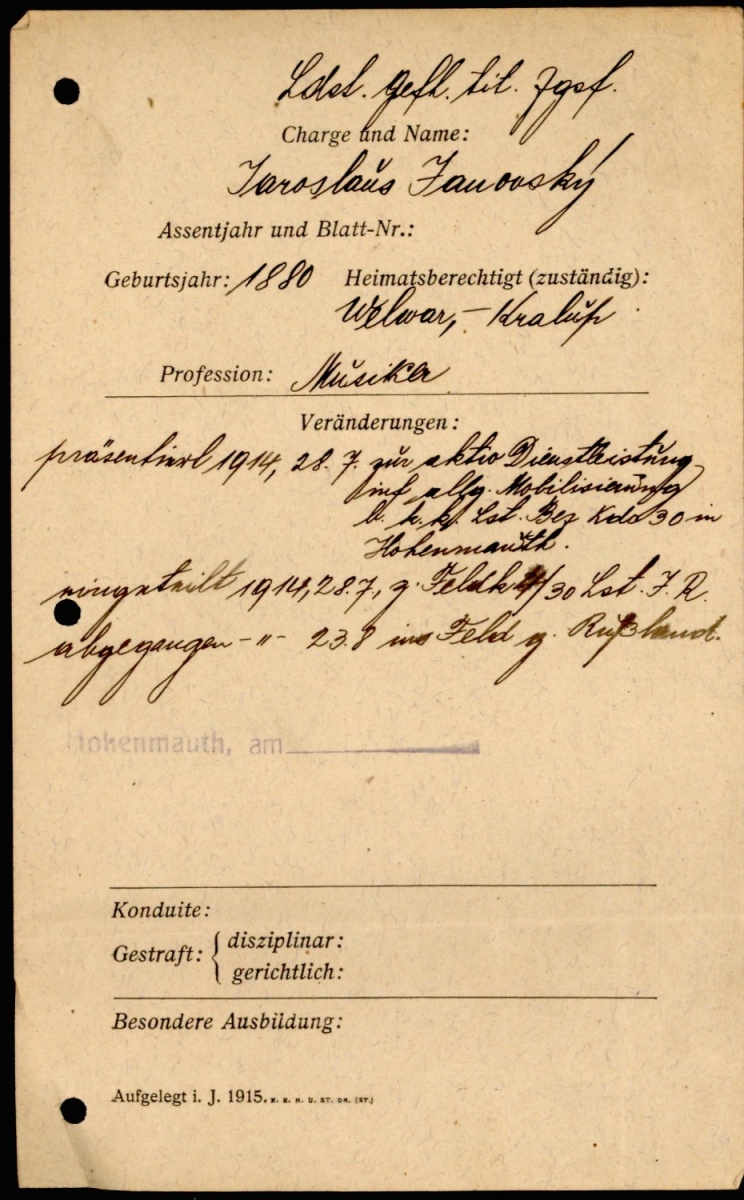 Ldst. Gefr. tit. Zgsf.
Charge und Name:
Jaroslaus Janovský
Assentjahr und Blatt-Nr.:
Geburtsjahr: 1880 Heimatsberechtigt (zuständig):
Welwar, - Kralup
Profession: Musiker
Veränderungen:
präsentiert 1914, 28. 7. zur aktiv Dienstleistung
inf. allg. Mobilisierung
b. k. k. Lst. Bez Kdo 30 in
Hohenmauth.
eingeteilt 1914, 28.7., z. Feldk 4/30 Lst. I. R.
abgegangen -"- 23.8 ins Feld g. Rußland.
Hohenmauth, am
Konduite:
Gestraft: disziplinar:
gerichtlich:
Besondere Ausbildung:
Aufgelegt i. J. 1915. K. K. H. U. ST. DR. (ST.)